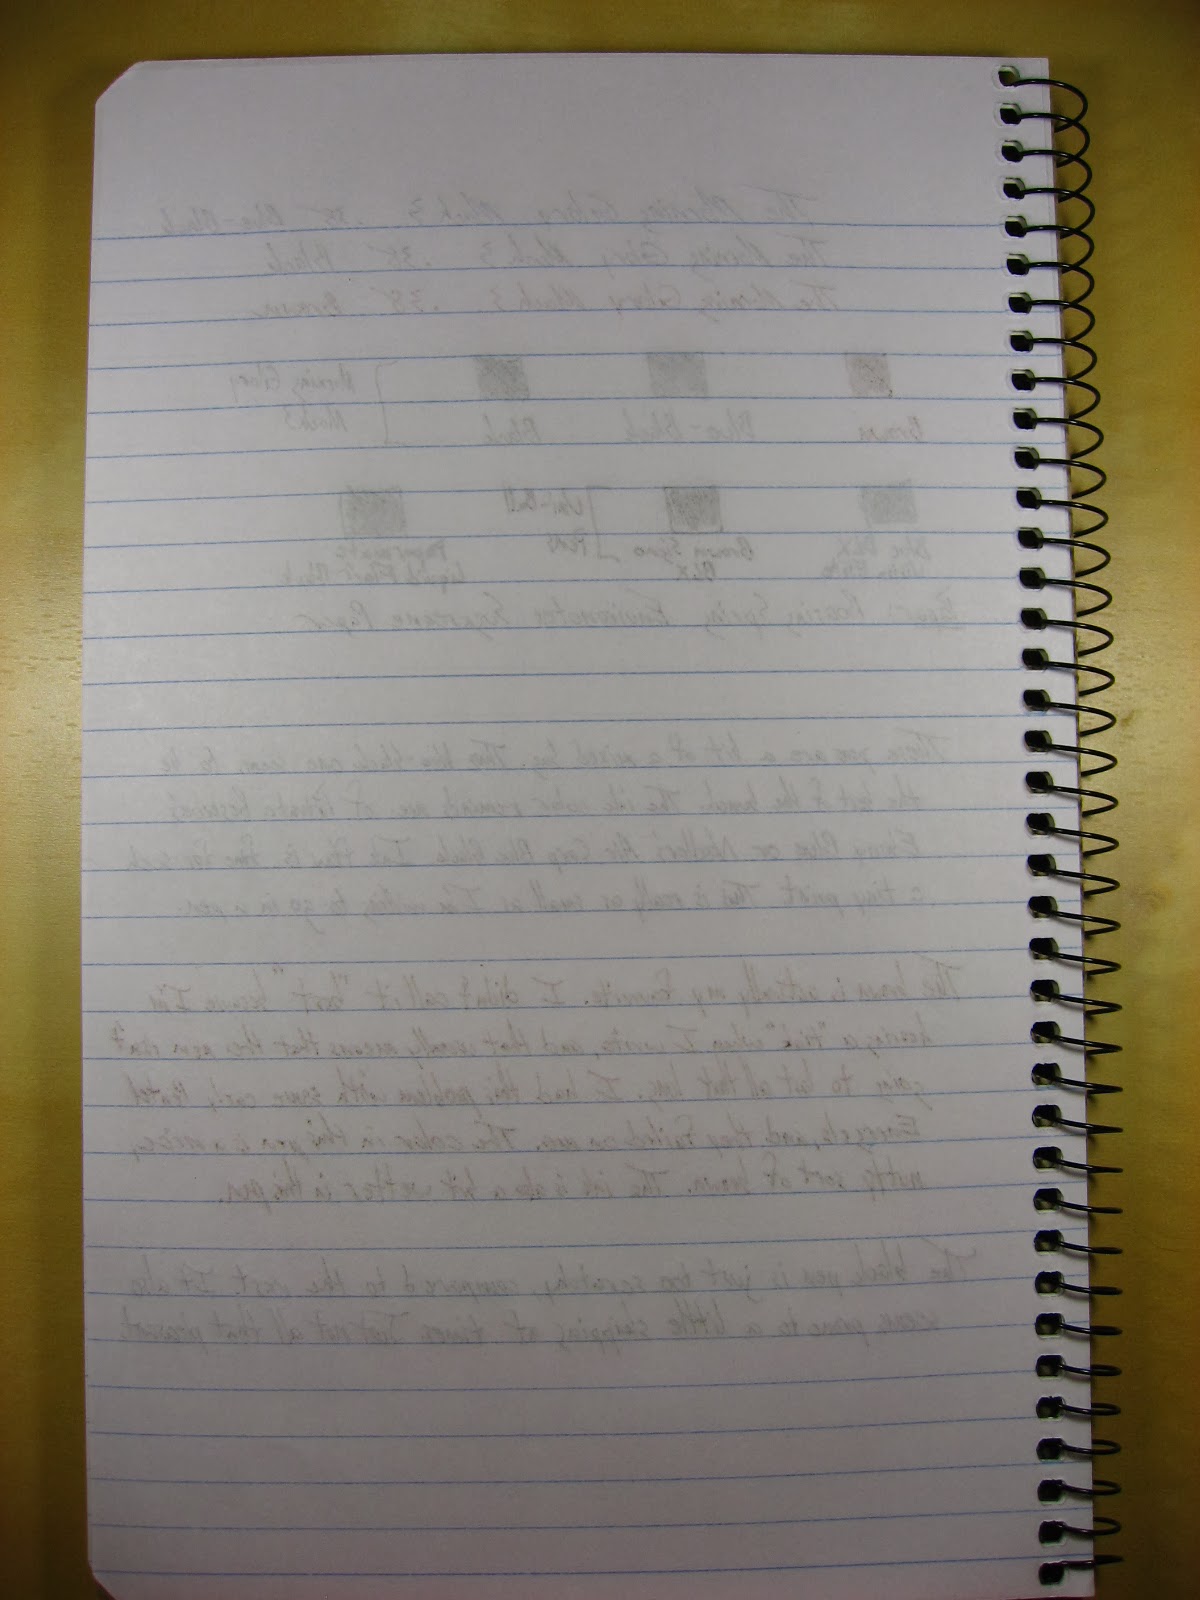 The Morning Glory Mach 3 .38 Blue-Black
The Morning Glory Mach 3 .38 Black
The Morning Glory Mach 3 .38 Brown
Brown Blue-Black Black Morning Glory Mach 3
Blue DLX Brown Signo DLX Uni-Ball Papermate Liquid Flair-Black
Paper: Roaring Spring Environotes Sugarcane Paper
These pens are a bit of a mixed bag. The blue-black one seems to be
the best of the bunch. The ink color reminds me of
or Noodler's Air Corp Blue Black. I like this for such
a tiny point. This is really as small as I'm willing to go in a pen.
The brown is actually my favorite. I didn't call it "best" because I'm
hearing a "tick" when I write, and that usually means that the pen isn't
going to last all that long. I had this problem with some early Pentel
Energels, and they failed on me. The color in this pen is a nice,
nutty sort of brown. The ink is also a bit wetter in this pen.
The black pen is just too scratchy compared to the rest. It also
seems prone to a little skipping at times. Just not all that pleasant.